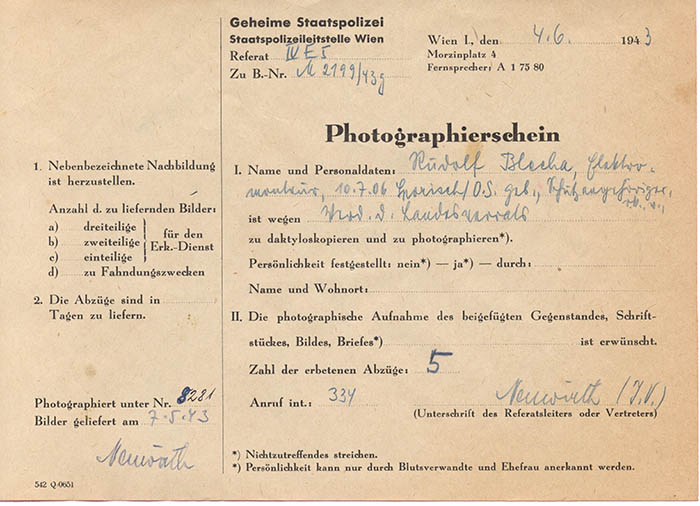 Geheime Staatspolizei
Staatspolizeileitstelle Wien
Referat IV E 5
Zu B.-Nr. M 2199/43g
Wien I., den 4.6. 1943
Morzinplatz 4
Fernsprecher: A 1 75 80
Photographierschein
1. Nebenbezeichnete Nachbildung
ist herzustellen.
Anzahl d. zu liefernden Bilder:
a) dreiteilige
b) zweiteilige
c) einteilige
für den
Erk.-Dienst
d) zu Fahndungszwecken
2. Die Abzüge sind in
Tagen zu liefern.
Photographiert unter Nr. 8281
Bilder geliefert am 7.5.43
Neuwirth
542 Q-0651
I. Name und Personaldaten: Rudolf Blecha, Elektro-
monteur, 10.7.06 geb., Schutzangehöriger,
ist wegen Verd. d. Landesverrats
zu daktyloskopieren und zu photographieren*).
Persönlichkeit festgestellt: nein*) — ja*) — durch:
Name und Wohnort:
II. Die photographische Aufnahme des beigefügten Gegenstandes, Schrift-
stückes, Bildes, Briefes*) ist erwünscht.
Zahl der erbetenen Abzüge: 5
Anruf int.: 334
Neuwirth (I.V.)
(Unterschrift des Referatsleiters oder Vertreters)
*) Nichtzutreffendes streichen.
*) Persönlichkeit kann nur durch Blutsverwandte und Ehefrau anerkannt werden.